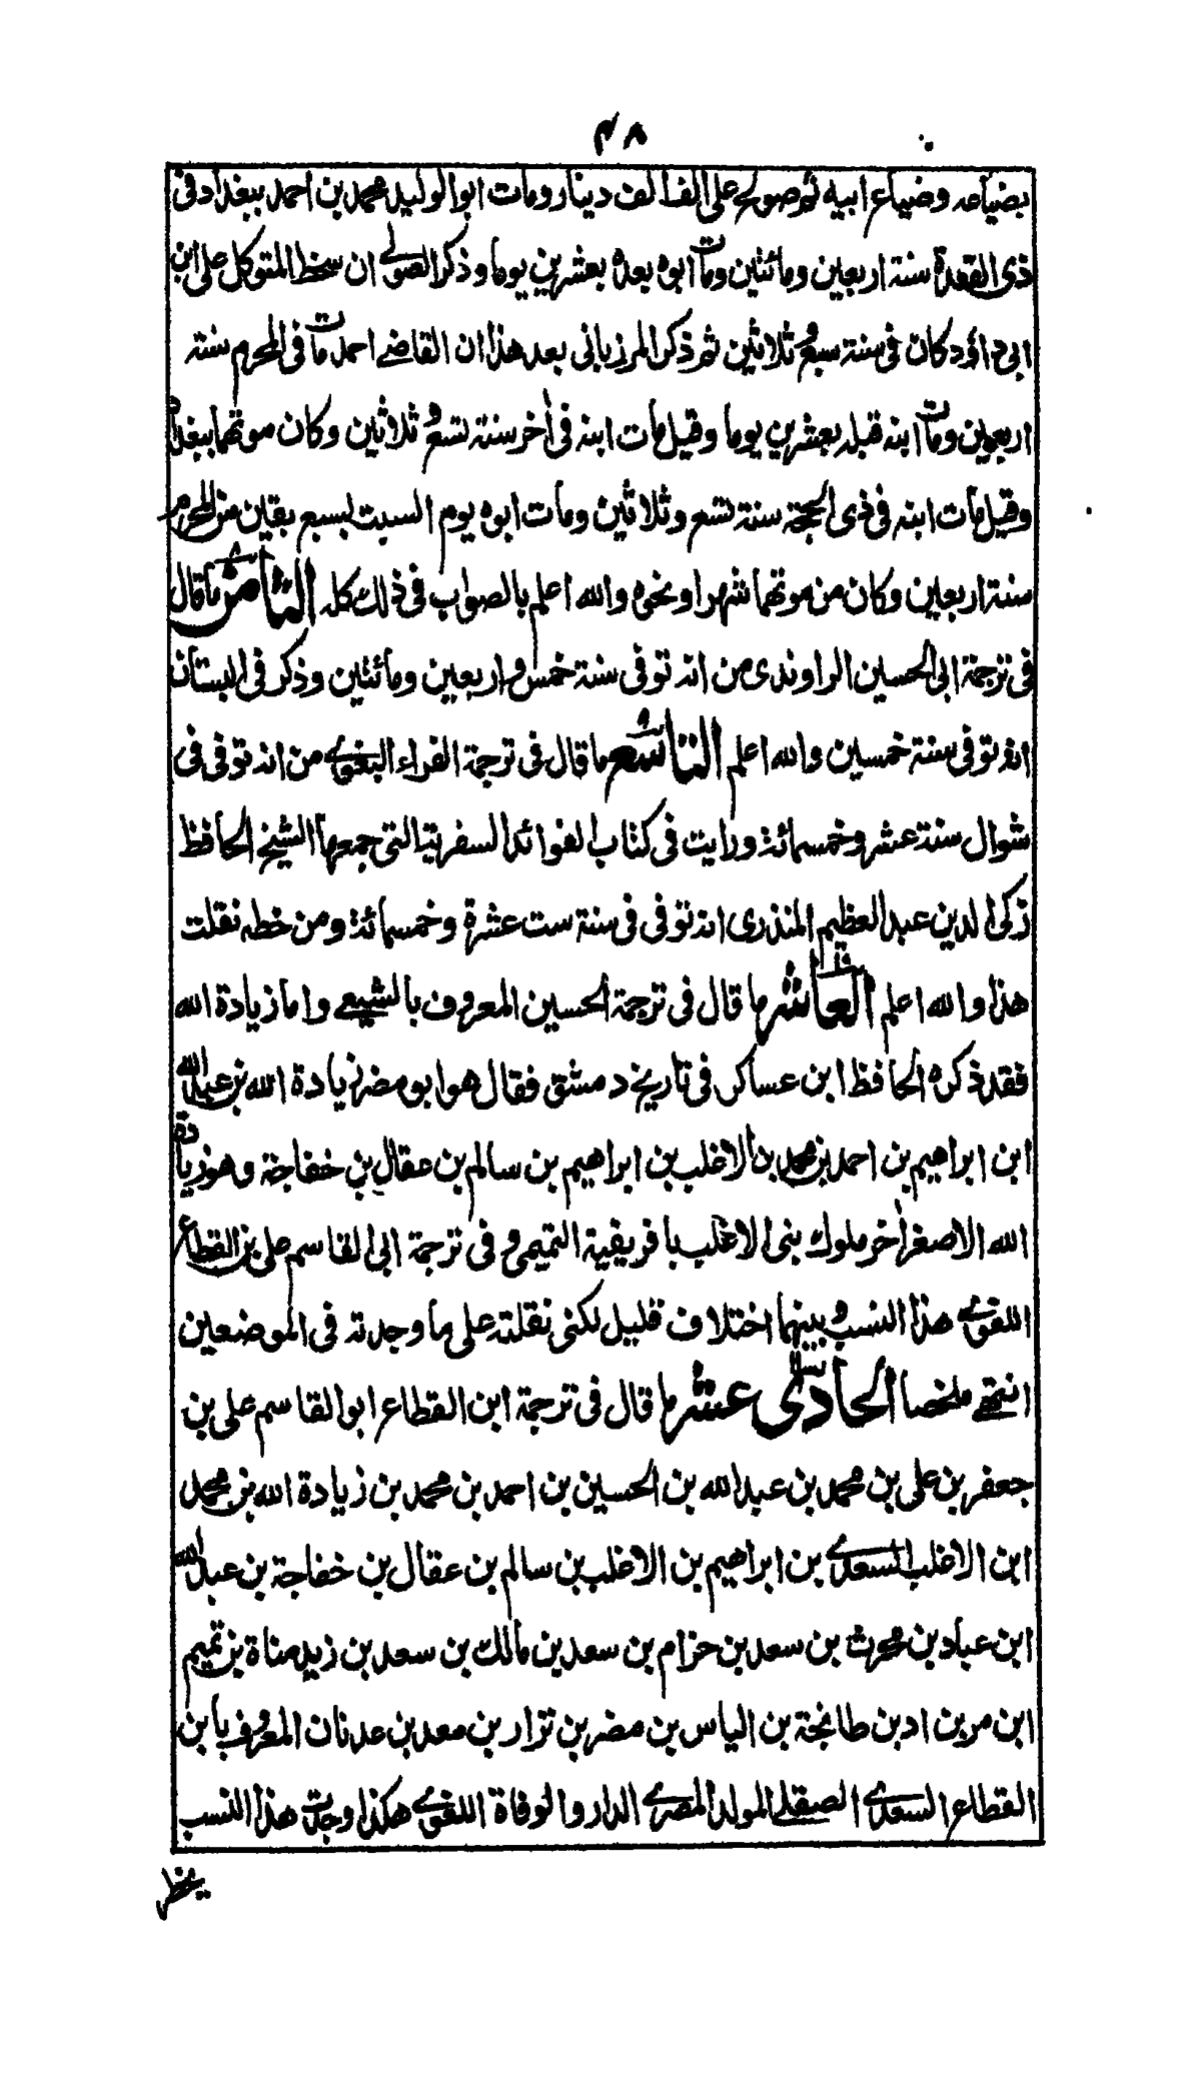 ٤٨
بضياعه وضياع ابيه ثم صولح على الف الف دينار ومات ابو الوليد محمد بن احمد ببغداد فى
ذى القعدة سنة اربعين ومائتين ومات ابوه بعده بعشرين يوما وذكر الصولے ان سخط المتوكل على ابن
ابى داؤد كان فى سنة سبع وثلاثين ثم ذكر المرزبانى بعد هذا ان القاضے احمد مات فى المحرم سنة
اربعين ومات ابنه قبله بعشرين يوما وقيل مات ابنه فى اٰخر سنة تسع وثلاثين وكان موتهما ببغداد
وقيل مات ابنه فى ذى الحجة سنة تسع وثلاثين ومات ابوه يوم السبت لسبع بقين من المحرم
سنة اربعين وكان من موتهما شهرا ونحوه والله اعلم بالصواب فى ذلك كله الثامن ما قال
فى ترجمة ابى الحسين الراوندى من انه توفى سنة خمس واربعين ومائتين وذكر فى البستان
انه توفى سنة خمسين والله اعلم التاسع ما قال فى ترجمة الفراء البغوے من انه توفى فى
شوال سنة عشر وخمسمائة ورايت فى كتاب الفوائد السفرية التى جمعها الشيخ الحافظ
زكى الدين عبد العظيم المنذرى انه توفى فى سنة ست عشرة وخمسمائة ومن خطه نقلت
هذا والله اعلم العاشر ما قال فى ترجمة الحسين المعروف بالشيعے واما زيادة الله
فقد ذكره الحافظ ابن عساكر فى تاريخ دمشق فقال هو ابو مضر زيادة الله بن عبد الله
ابن ابراهيم بن احمد بن محمد بن الاغلب بن ابراهيم بن سالم بن عقال بن خفاجة وهو زيادة
الله الاصغر اٰخر ملوك بنى الاغلب بافريقية التميمى وفى ترجمة ابى القاسم على بن القطاع
اللغوے هذا النسب وبينهما اختلاف قليل لكنى نقلته على ما وجدته فى الموضعين
انتهے ملخصا الحادى عشر ما قال فى ترجمة ابن القطاع ابو القاسم على بن
جعفر بن على بن محمد بن عبد الله بن الحسين بن احمد بن محمد بن زيادة الله بن محمد
ابن الاغلب السعدے بن ابراهيم بن الاغلب بن سالم بن عقال بن خفاجة بن عبد الله
ابن عباد بن محرث بن سعد بن حزام بن سعد بن مالك بن سعد بن زيد مناة بن تميم
ابن مر بن اد بن طابخة بن الياس بن مضر بن نزار بن معد بن عدنان المعروف بابن
القطاع السعدے الصقلے المولد المصرے الدار والوفاة اللغوے هكذا وجدت هذا النسب
بخط